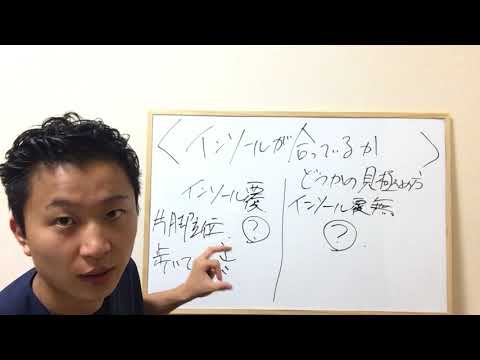 〈インソールが合っているか〉
どうかの見極め方
インソール
片脚立位 ?
歩いて
インソール 無
?